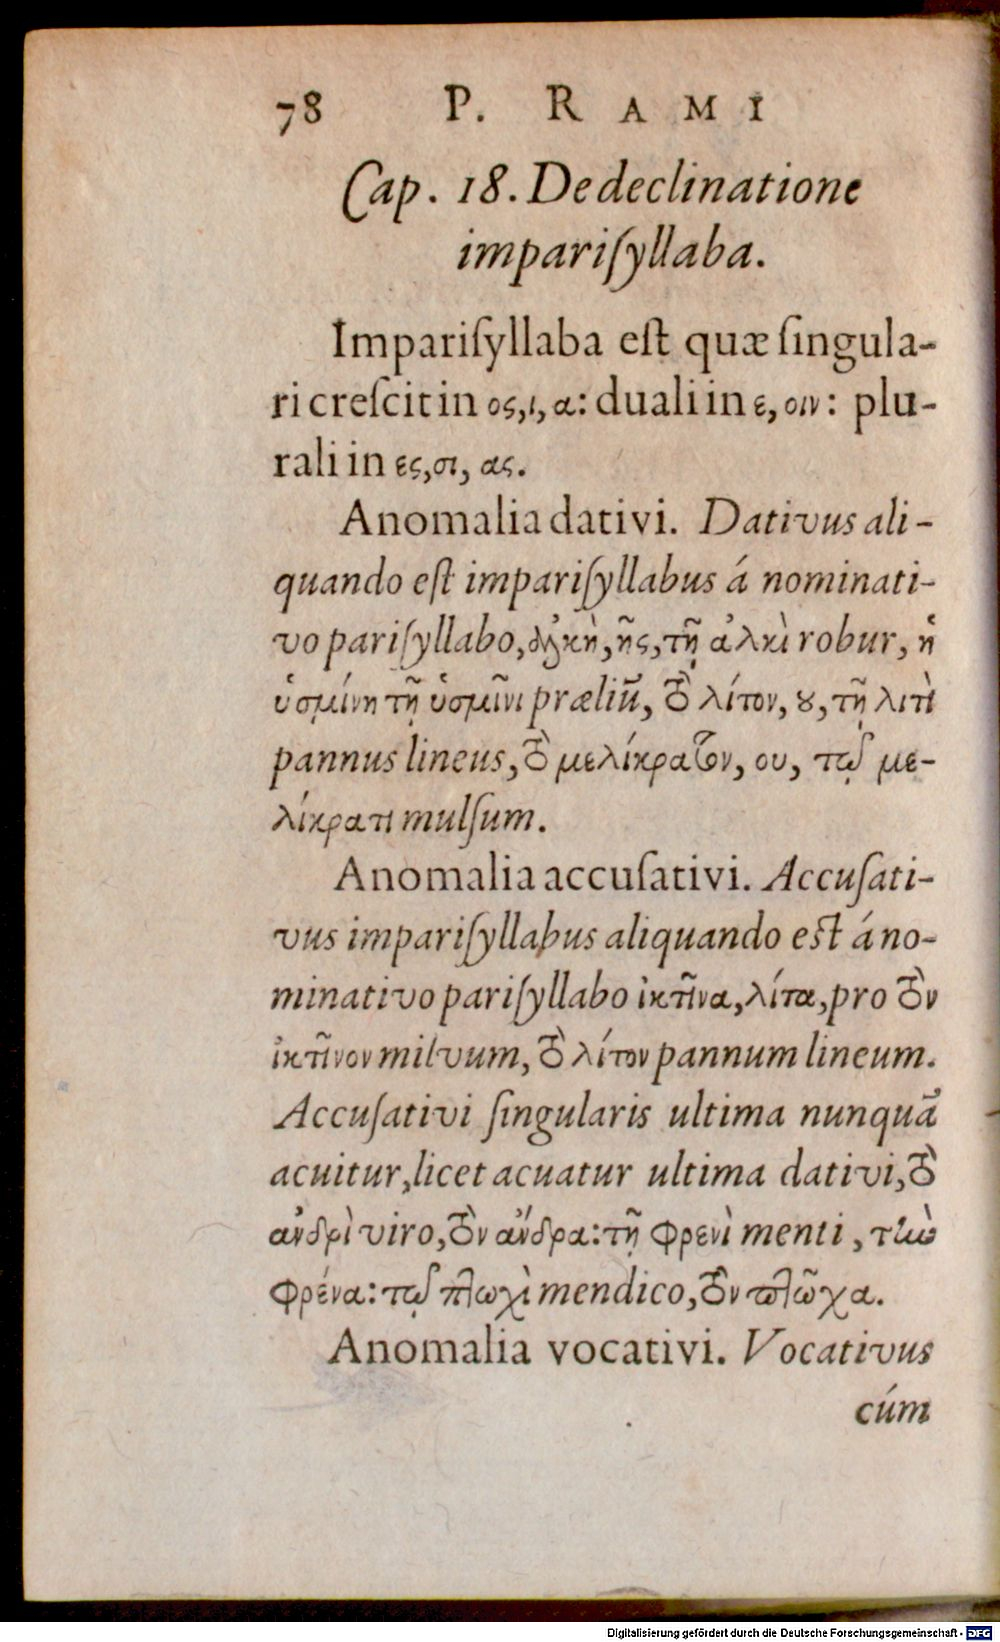 78 P. RAMI
Cap. 18. De declinatione
impariſyllaba.
Impariſyllaba eſt quæ ſingula-
ri creſcit in ος, ι, α: duali in ε, οιν: plu-
rali in ες, σι, ας.
Anomalia dativi. Dativus ali-
quando eſt impariſyllabus á nominati-
vo pariſyllabo, ἀλκὴ, ῆς, τῇ ἀλκὶ robur, ἡ
ὑσμίνη τῇ ὑσμῖνι præliũ, τὸ λίτον, ȣ, τῇ λιτὶ
pannus lineus, τὸ μελίκρατον, ου, τῷ με-
λίκρατι mulſum.
Anomalia accuſativi. Accuſati-
vus impariſyllabus aliquando eſt á no-
minativo pariſyllabo ἰκτῖνα, λίτα, pro τὸν
ἰκτῖνον milvum, τὸ λίτον pannum lineum.
Accuſativi ſingularis ultima nunquã
acuitur, licet acuatur ultima dativi, τὸ
ἀνδρὶ viro, τὸν ἄνδρα: τῇ φρενὶ menti, τὴν
φρένα: τῷ πτωχὶ mendico, τὸν πτῶχα.
Anomalia vocativi. Vocativus
cúm
Digitalisierung gefördert durch die Deutsche Forschungsgemeinschaft - DFG